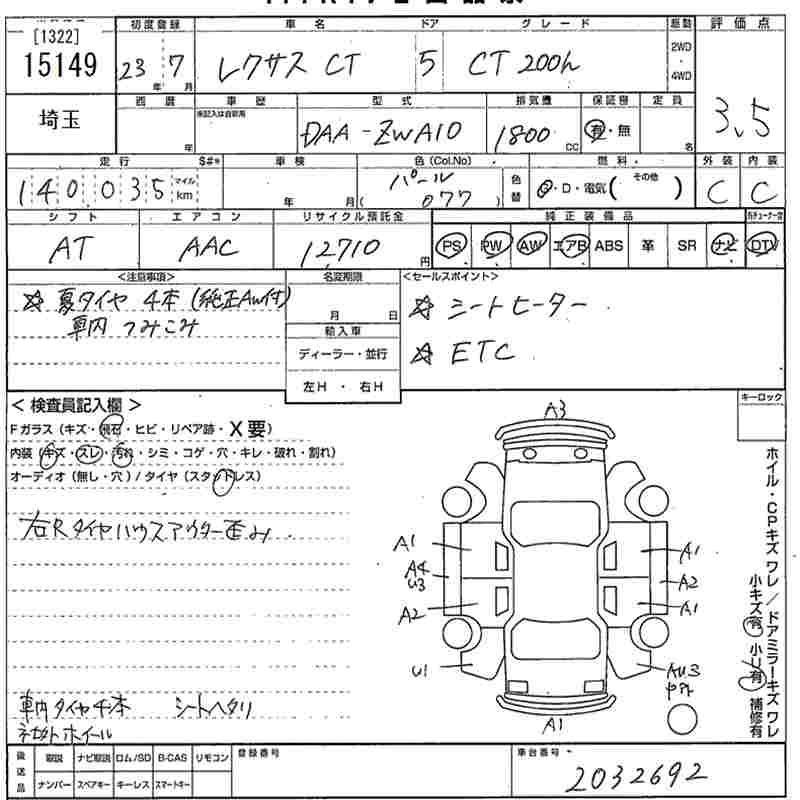 [1322]
15149
埼玉
初度登録
23年 7月
車名 ドア グレード
レクサス CT 5 CT 200h
駆動
2WD
・
4WD
評価点
3.5
西暦
年
車歴
未記入は自家用
型式
DAA-ZWA10
排気量
1800 CC
保証書
有・無
定員
名
走行 $#*
140,035 マイル km
車検
年 月
色(Col.No)
パール
( 077 )
色替
燃料
G・D・電気( その他 )
外装 内装
C C
シフト
AT
エアコン
AAC
リサイクル預託金
12710 円
純正装備品
PS PW AW エアB ABS 革 SR ナビ DTV
<注意事項>
☆ 夏タイヤ 4本 (純正AW付)
車内 つみこみ
名変期限
月 日
輸入車
ディーラー・並行
左H ・ 右H
<セールスポイント>
☆ シートヒーター
☆ ETC
<検査員記入欄>
Fガラス(キズ・飛石・ヒビ・リペア跡・X要)
内装(キズ・スレ・汚れ・シミ・コゲ・穴・キレ・破れ・割れ)
オーディオ(無し・穴)/タイヤ(スタッドレス)
右Rタイヤハウスアウター歪み
車内タイヤ4本 シートヘタリ
ネセ外ホイール
キーロック
A3
A1
A4
U3
A2
U1
A1
A2
A1
AU3
A1
ホイル・CPキズ ワレ/ドアミラーキズ ワレ
小キズ有 小U有 補修有
後送品
取説 ナビ取説 ロム/SD B-CAS リモコン
ナンバー スペアキー キーレス スマートキー
登録番号
車台番号
2032692